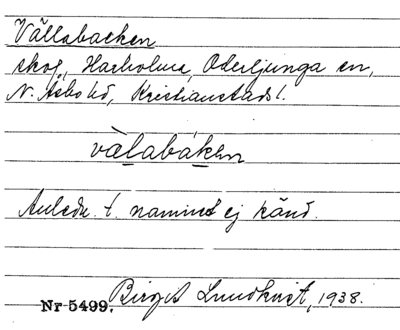 Vällabacken
skog, Harholma, Oderljunga sn,
N. Åsbo hd, Kristianstads l.
vä̀labáken
Anledn. t. namnet ej känd.
Nr 5499. Birgit Lundkvist, 1938.